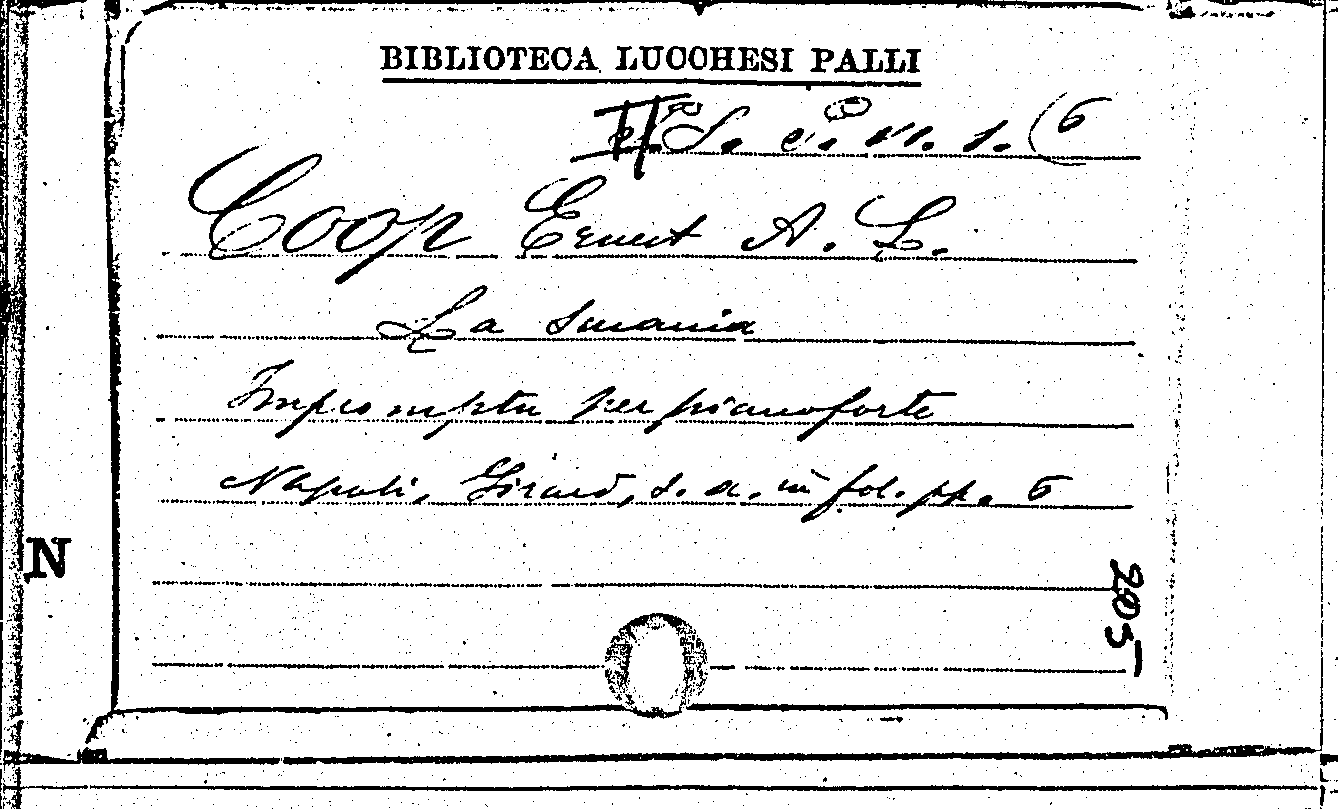 BIBLIOTECA LUCCHESI PALLI
II S. c. n. 1. (6
Coop Ernest A. L.
La smania
Impromptu per pianoforte
Napoli, Girard, s. a. in fol. pp. 6
N
205